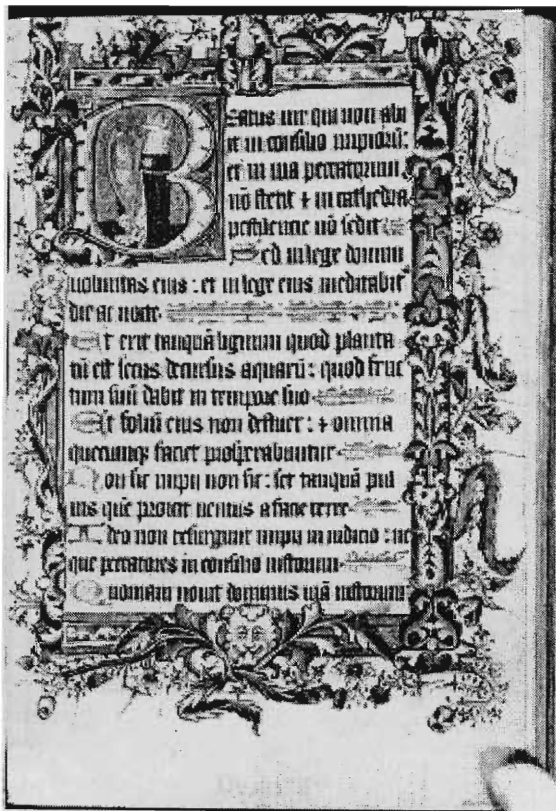 Beatus uir qui non abi
it in consilio impiorū:
et in uia peccatorum
nō stetit + in cathedra
pestilencie nō sedit
Sed in lege domini
uoluntas eius : et in lege eius meditabit᷑
die ac nocte.
Et erit tanquā lignum quod planta
tū est secus decursus aquarū : quod fruc
tum suū dabit in tempore suo.
Et foliū eius non defluet : + omnia
quecumqꝫ faciet prosperabuntur.
Non sic impii non sic : set tanquā pul
uis quē proicit uentus a facie terre.
Ideo non resurgunt impii in iudicio : ne
que peccatores in consilio iustorum.
Quoniam nouit dominus uiā iustorum